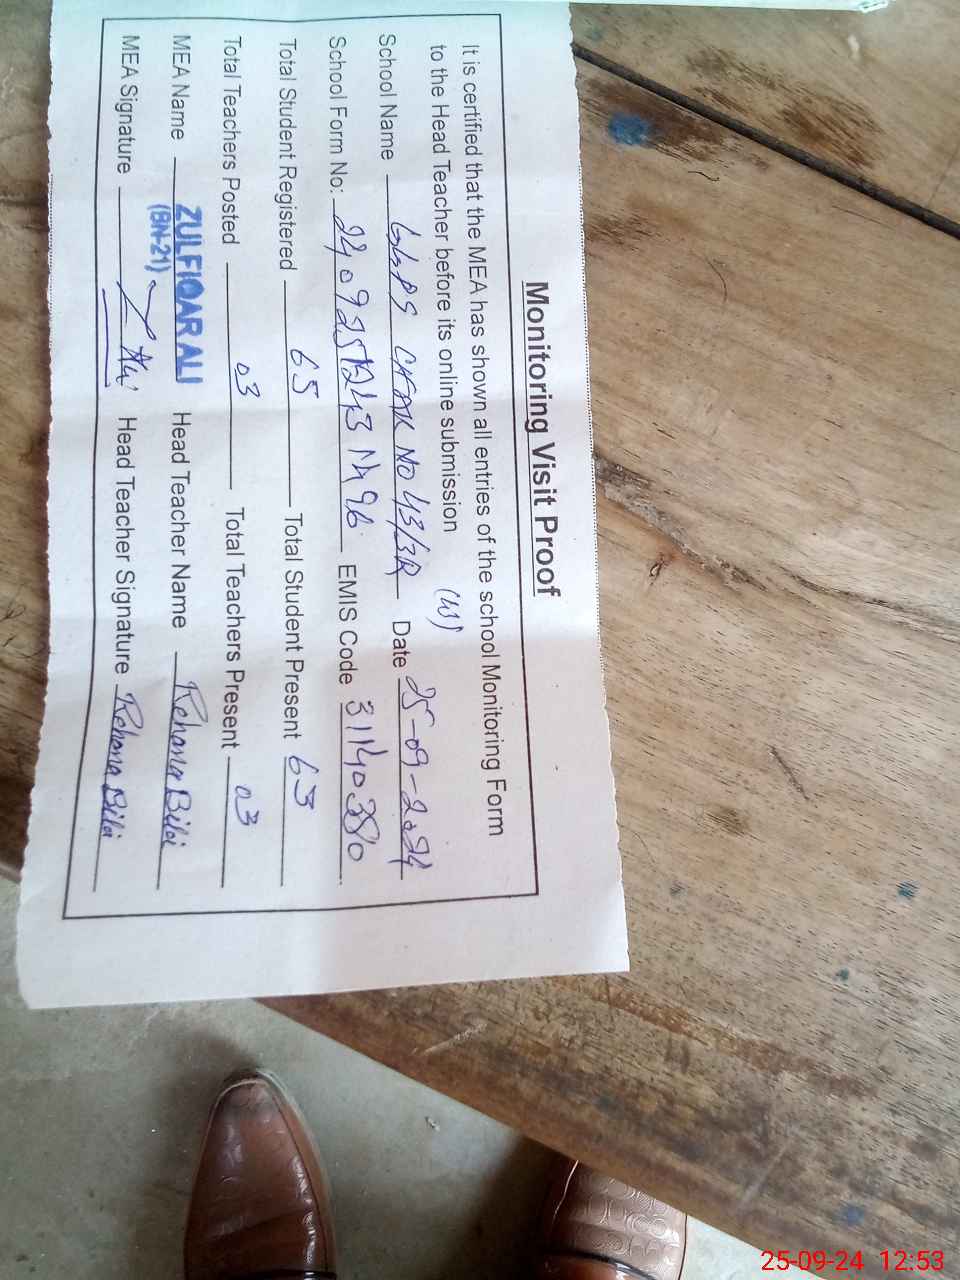 Monitoring Visit Proof
It is certified that the MEA has shown all entries of the school Monitoring Form
to the Head Teacher before its online submission (W)
School Name GGPS CHAK NO 43/3R Date 25-09-2024
School Form No: EMIS Code 31140380
Total Student Registered 65 Total Student Present 63
Total Teachers Posted 03 Total Teachers Present 03
MEA Name ZULFIQAR ALI Head Teacher Name Rehana Bibi
(BN-21)
MEA Signature Head Teacher Signature Rehana Bibi
25-09-24 12:53